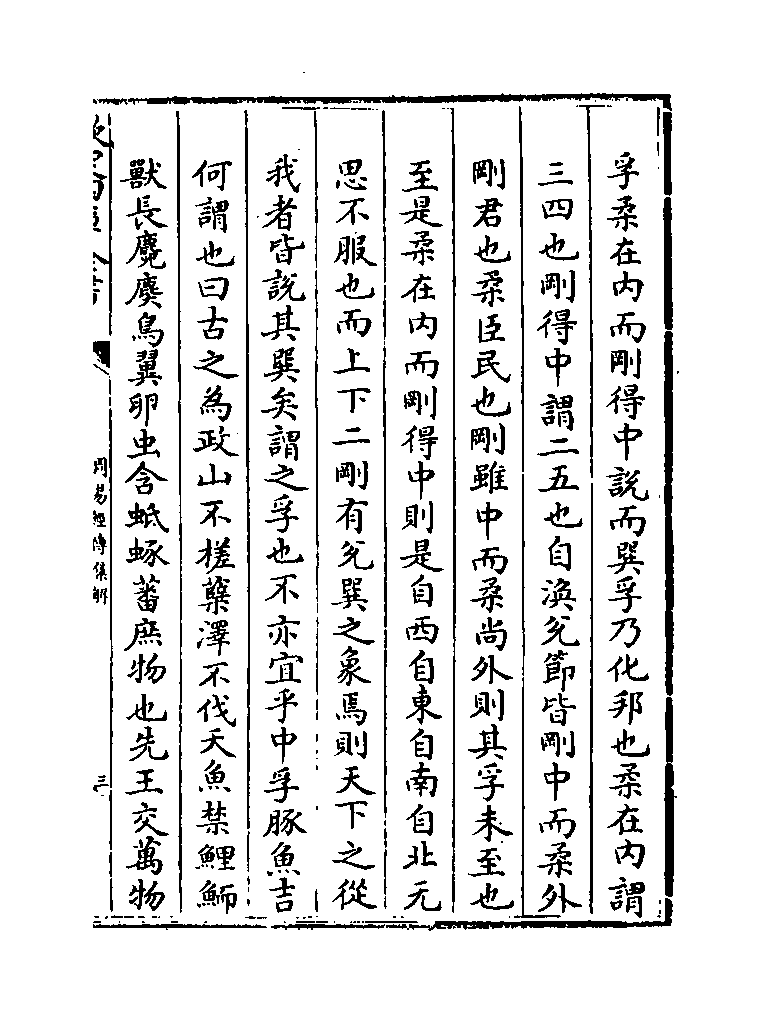 孚柔在内而剛得中說而巽孚乃化邦也柔在内謂
三四也剛得中謂二五也自渙兌節皆剛中而柔外
剛君也柔臣民也剛雖中而柔尚外則其孚未至也
至是柔在内而剛得中則是自西自東自南自北无
思不服也而上下二剛有兌巽之象焉則天下之從
我者皆說其巽矣謂之孚也不亦宜乎中孚豚魚吉
何謂也曰古之為政山不槎蘖澤不伐夭魚禁鯤鮞
獸長麑䴠鳥翼卵虫含蚳蝝蕃庶物也先王交萬物
周易經傳集解
三